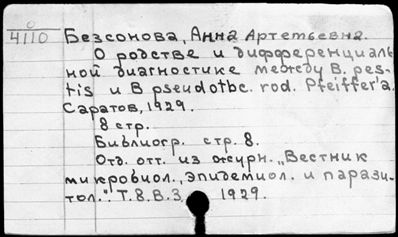 4110 Безсонова, Анна Артемьевна.
О родстве и дифференциаль
ной диагностике между B. pes-
tis и B pseudotbc. rod. Pfeiffer'a.
Саратов, 1929.
8 стр.
Библиогр. стр. 8.
Отд. отт. из журн. „Вестник
микробиол., эпидемиол. и парази-
тол.". Т. 8. В. 3, 1929.